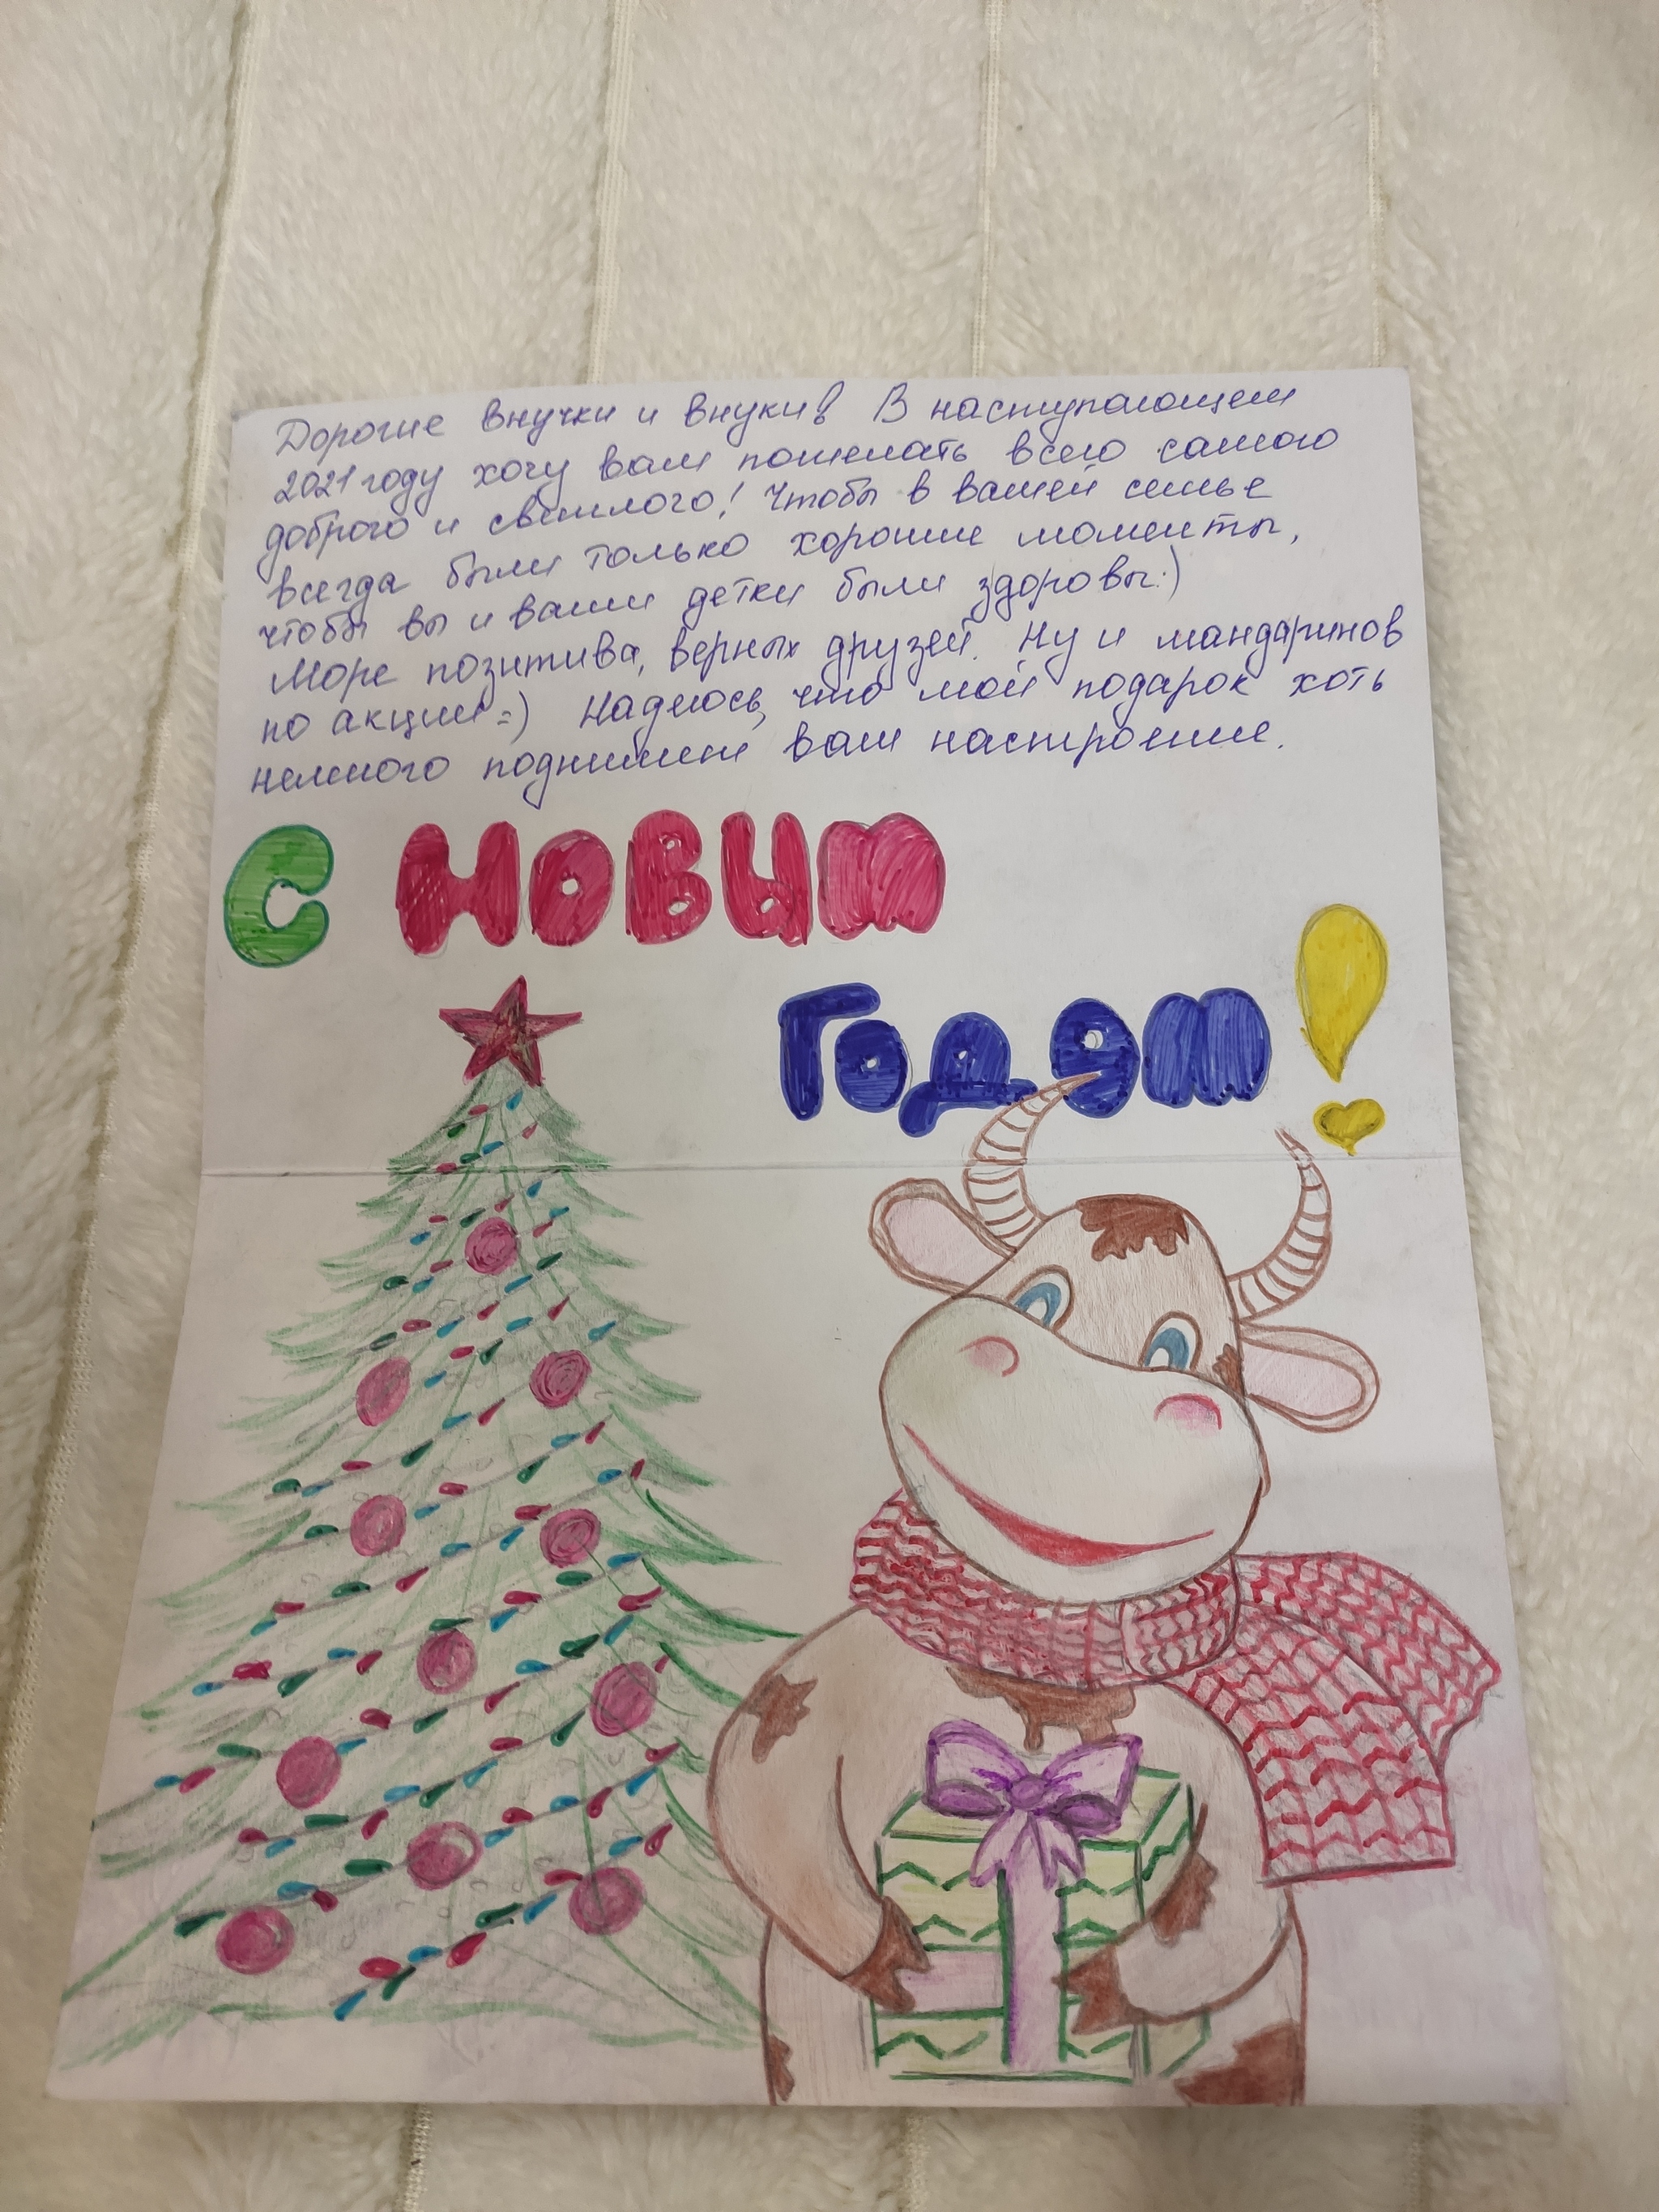 Дорогие внучки и внуки! В наступающем
2021 году хочу вам пожелать всего самого
доброго и светлого! Чтобы в вашей семье
всегда были только хорошие моменты,
чтобы вы и ваши детки были здоровы:)
Море позитива, верных друзей. Ну и мандаринов
по акции=) Надеюсь, что мой подарок хоть
немного поднимет вам настроение.
С НОВЫМ
ГОДОМ!